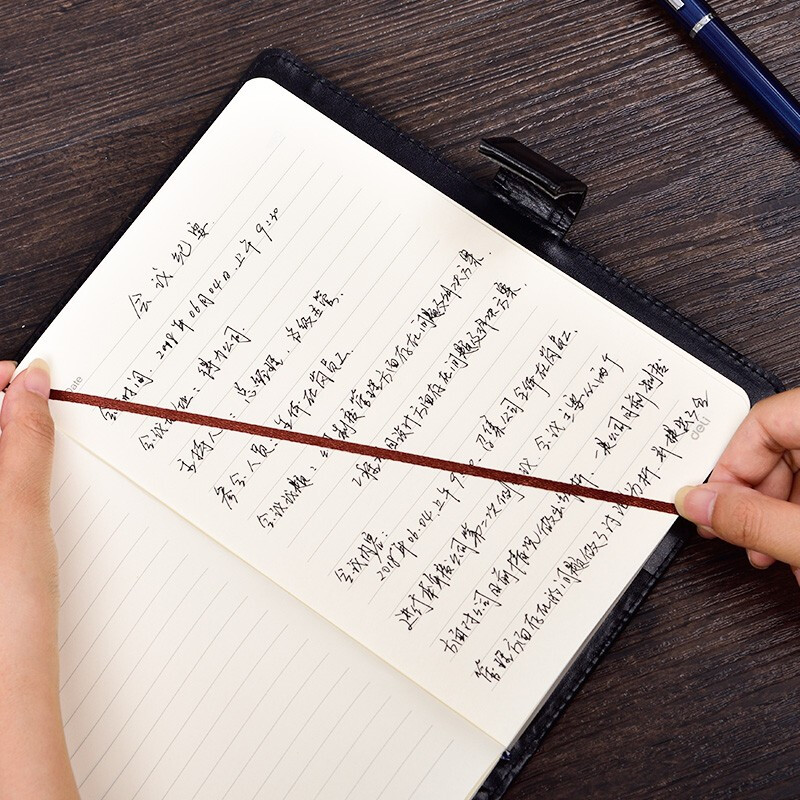 Date
会议纪要
会议时间：2018年06月04日上午9:30
会议地址：得力公司
主持人：总经理、各级主管
参会人员：全体在岗员工
会议议题：制度管理方面存在问题及解决方案
工程项目设计方面存在问题及解决方案
会议内容：
2018年06.04.上午9 召集公司全体在岗员工
进行 公司第二次 会议 会议主要从两个
方面对公司目前情况做出分析 一是公司目前制度
管理方面存在的问题做了讨论分析，并提出了
deli